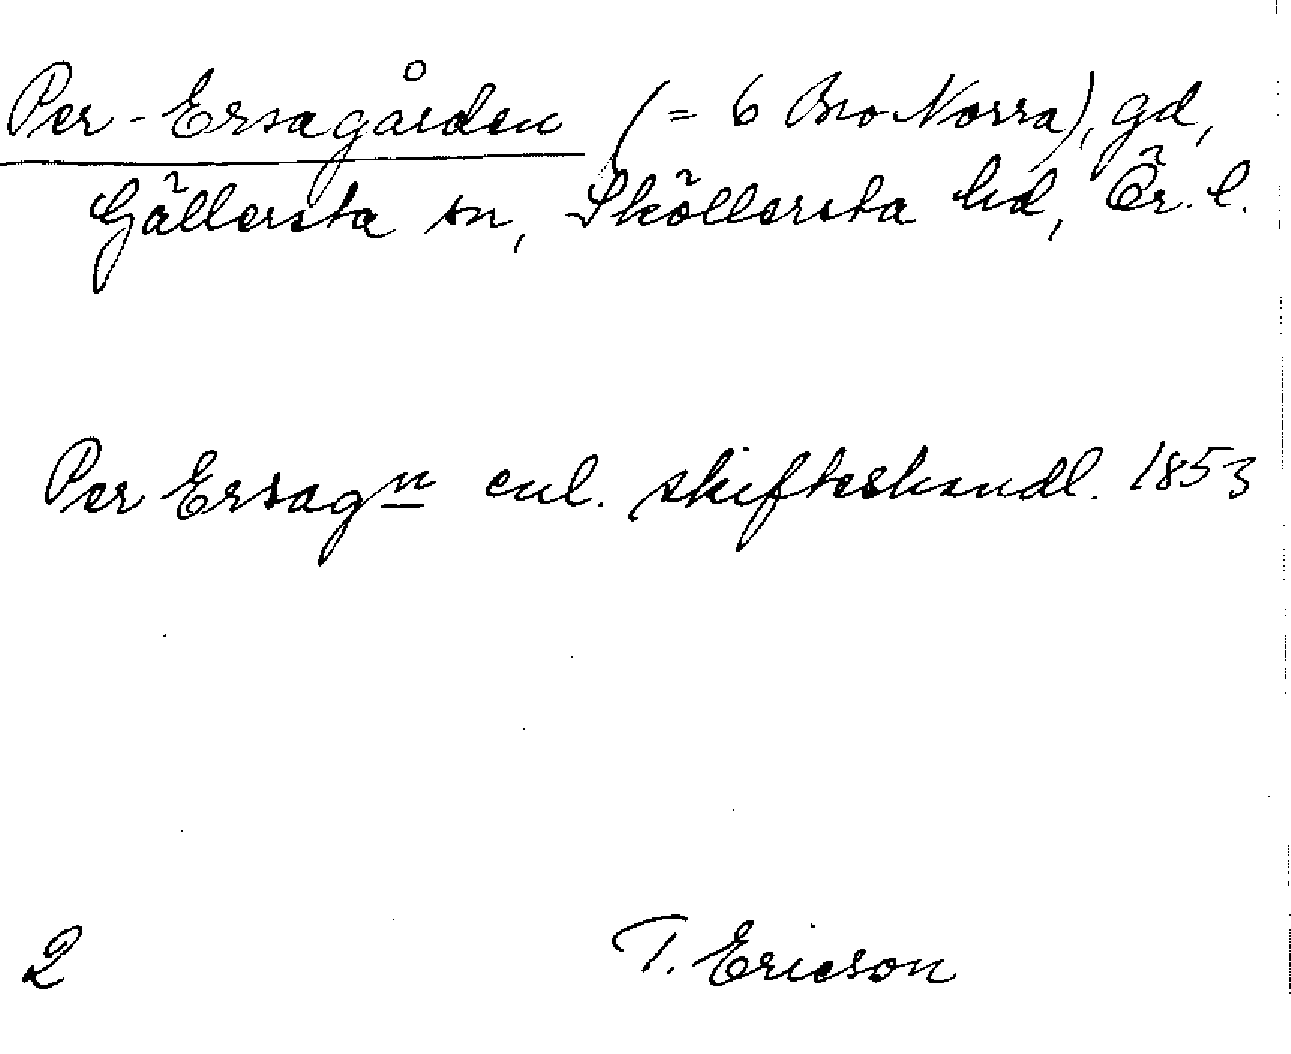 Per-Ersagården (= 6 Bro Norra), gd,
Gällersta sn, Sköllersta hd, Ör. l.
Per Ersagn enl. skifteshandl. 1853
2 T. Ericson